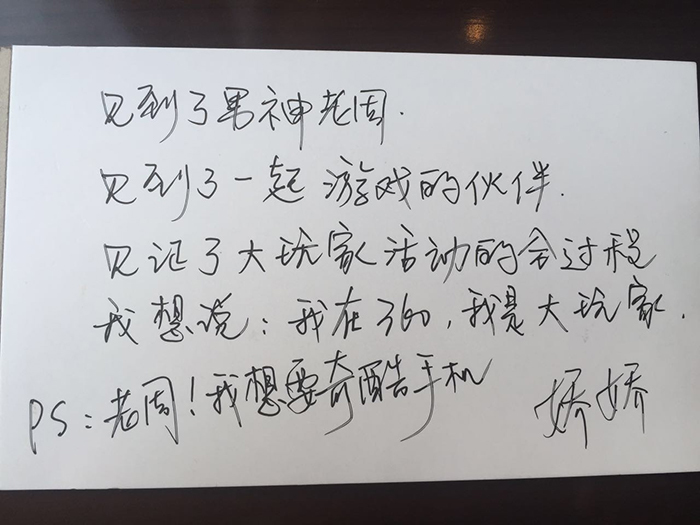 见到了男神老周.
见到了一起游戏的伙伴.
见证了大玩家活动的全过程
我想说:我在360,我是大玩家.
PS:老周!我想要奇酷手机
娇娇